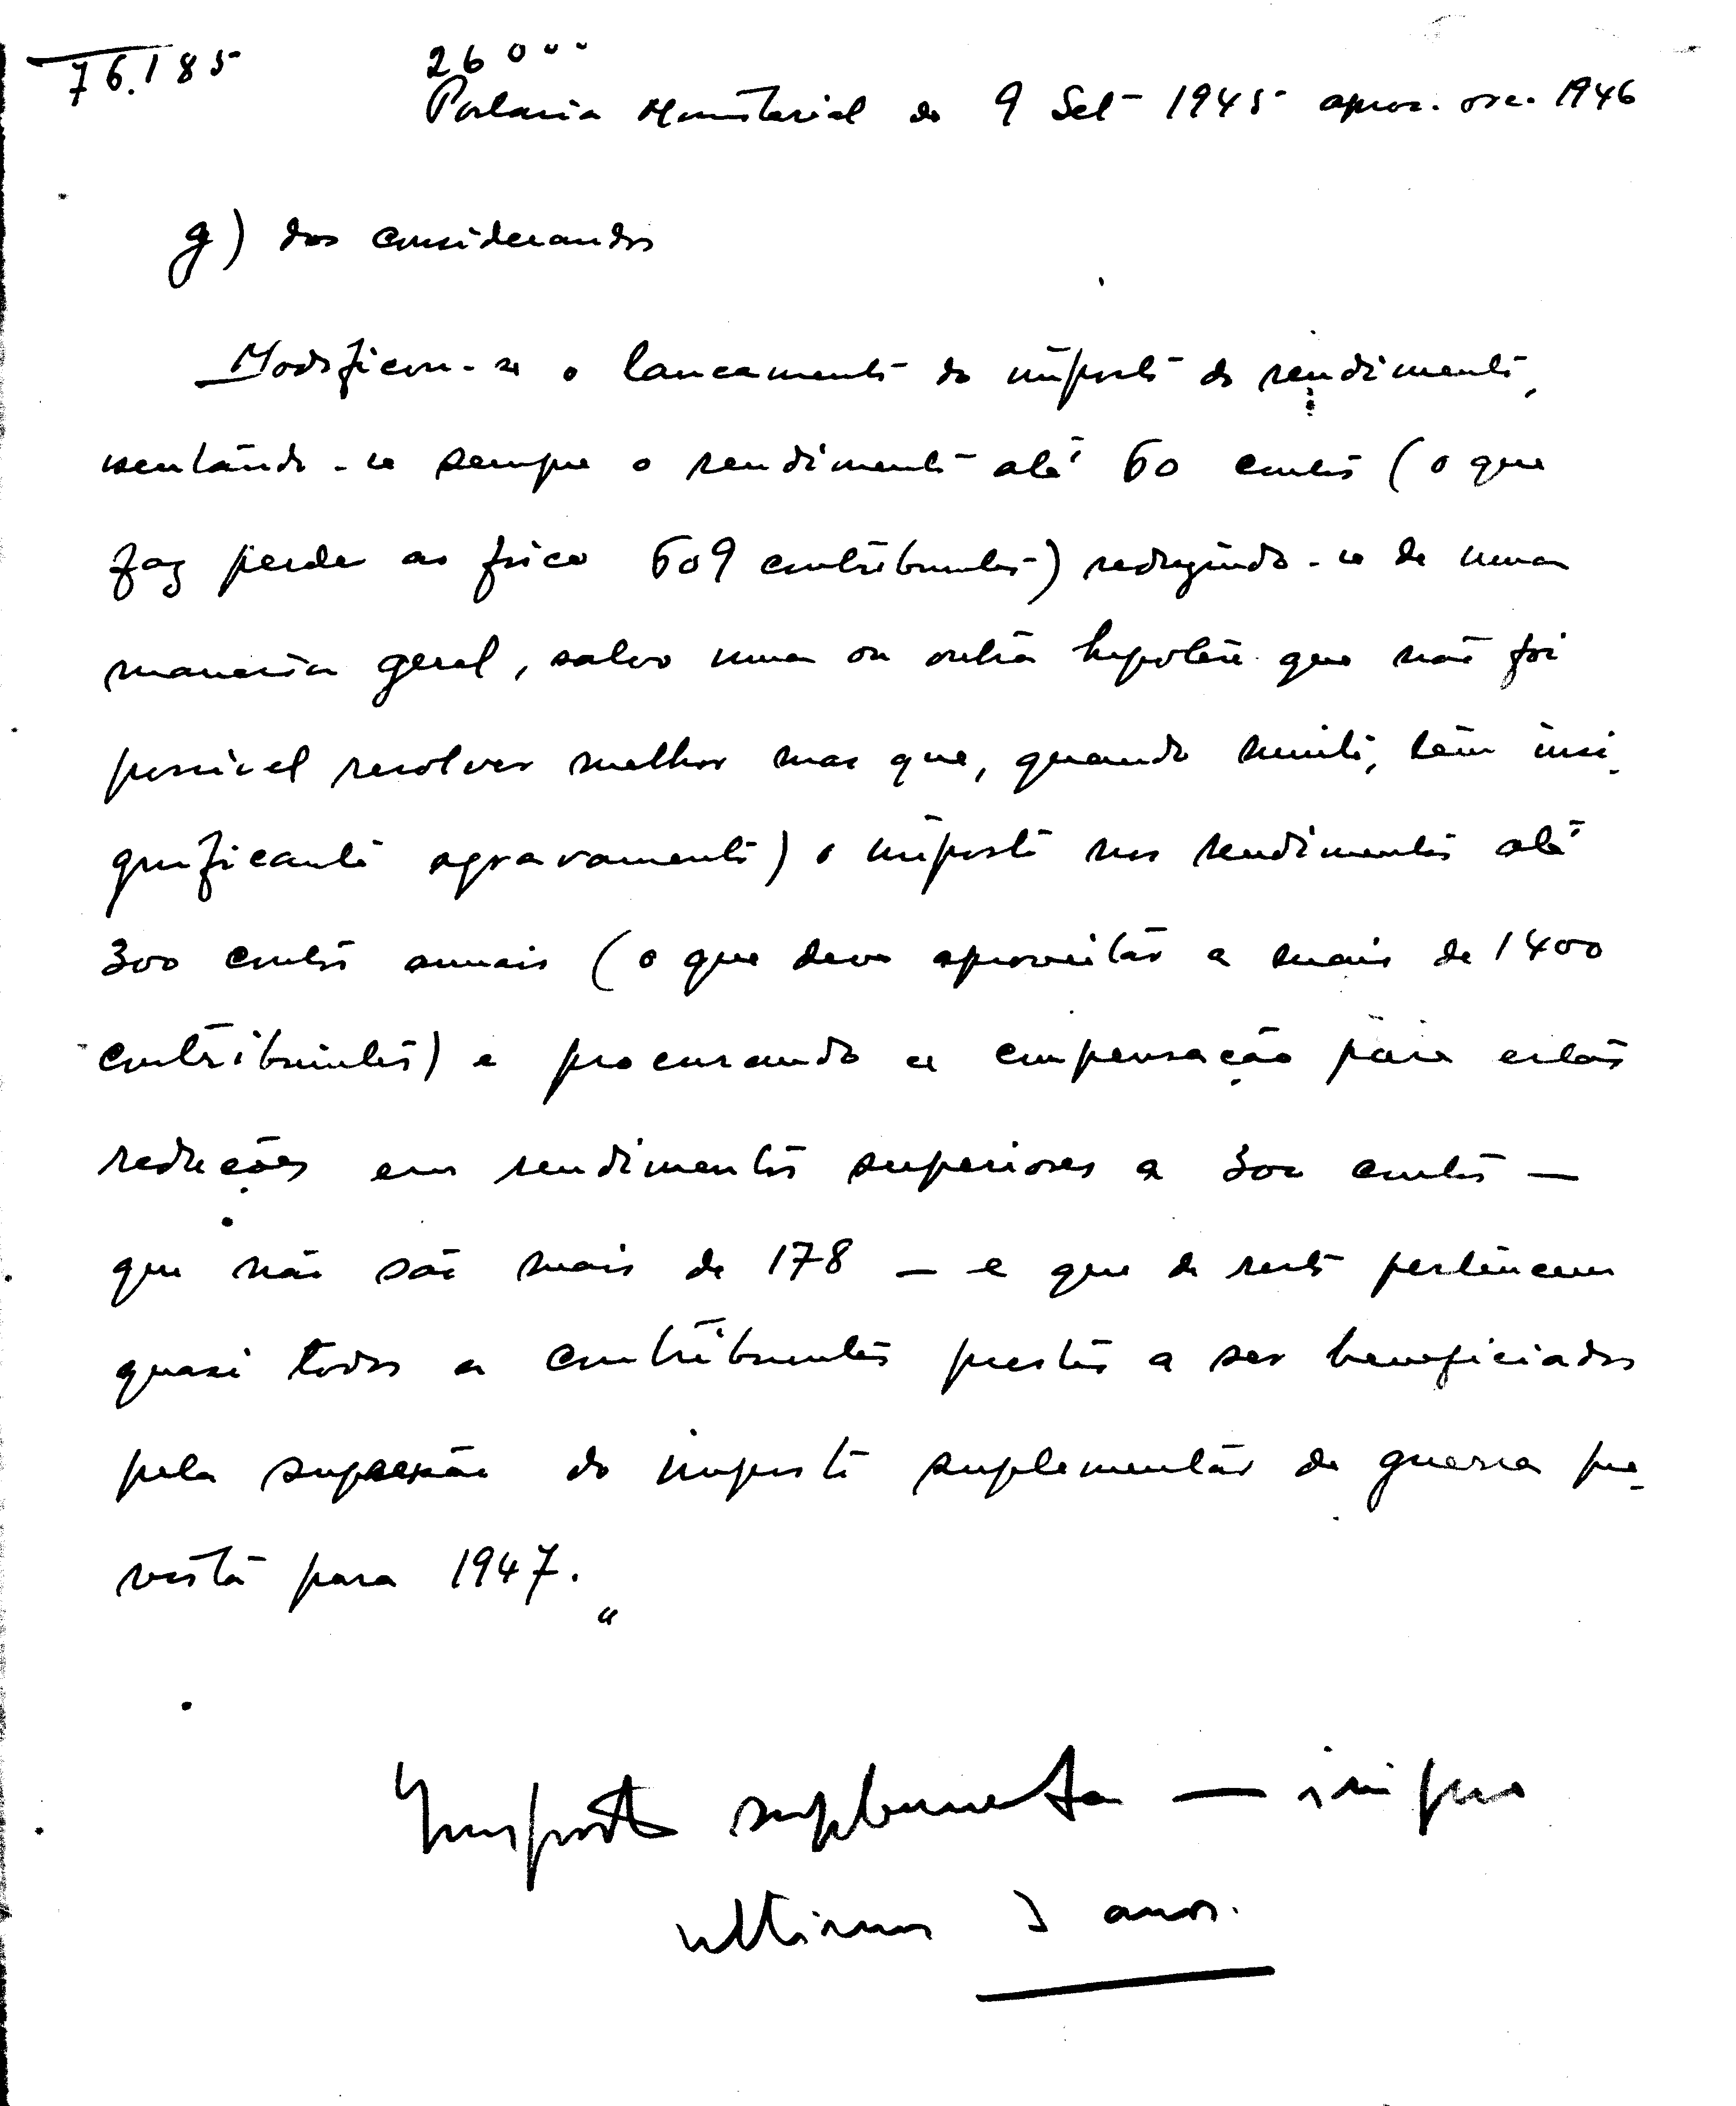 76.185
26000
Portaria Ministerial de 9 Set 1945 aprov. orc. 1946
g) dos considerandos
Modificou-se o lancamento do imposto de rendimento,
isentando-se sempre o rendimento até 60 contos (o que
faz perder ao fisco 609 contribuintes) reduzindo-se de uma
maneira geral, salvo uma ou outra hipotese que não foi
possivel resolver melhor mas que, quando muito, têm insi-
gnificante agravamento) o imposto nos rendimentos até
300 contos anuais (o que deve aproveitar a mais de 1400
contribuintes) e procurando a compensação para estas
reducções em rendimentos superiores a 300 contos —
que não são mais de 178 — e que de resto pertencem
quasi todos a contribuintes prestes a ser beneficiados
pela supressão do imposto suplementar de guerra pre-
vista para 1947."
Imposto suplementar —
ultimos 3 anos.